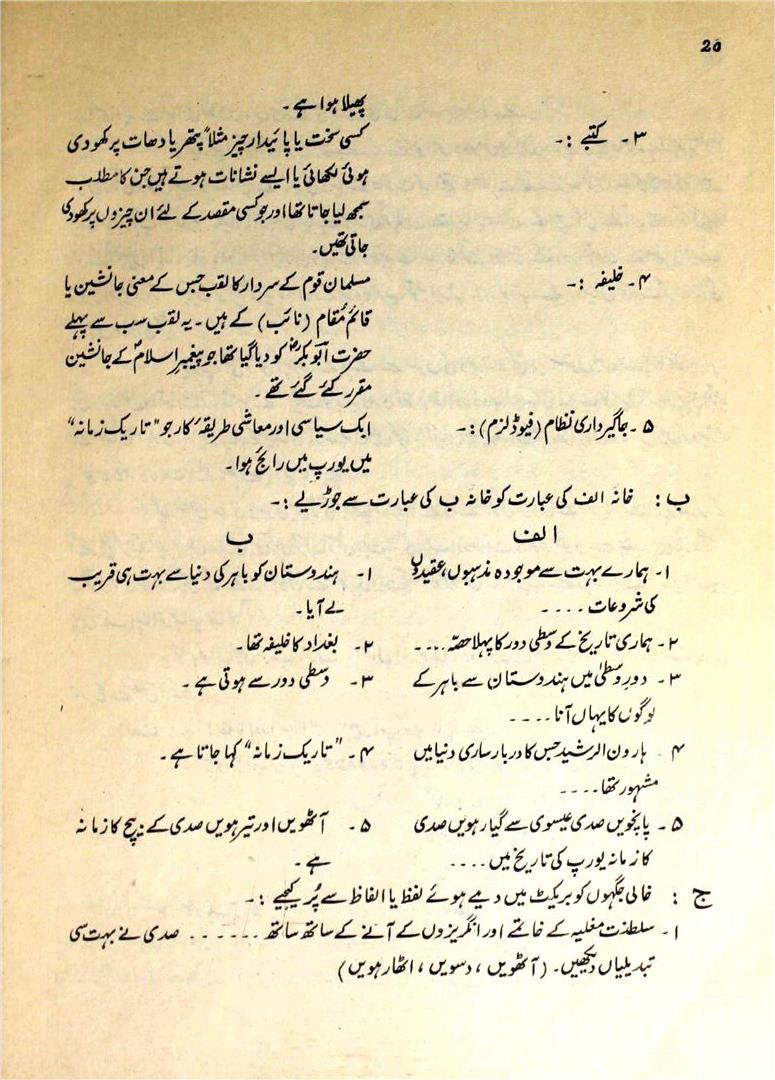 20
پھیلا ہوا ہے۔
۳۔ کتبے :۔ کسی سخت یا پائیدار چیز مثلاً پتھر یا دھات پر کھودی
ہوئی لکھائی یا ایسے نشانات ہوتے ہیں جن کا مطلب
سمجھ لیا جاتا تھا اور جو کسی مقصد کے لئے ان چیزوں پر کھودی
جاتی تھیں۔
۴۔ خلیفہ :۔ مسلمان قوم کے سردار کا لقب جس کے معنی جانشین یا
قائم مُقام (نائب) کے ہیں۔ یہ لقب سب سے پہلے
حضرت ابوبکرؓ کو دیا گیا تھا جو پیغمبرِ اسلامؐ کے جانشین
مقرر کئے گئے تھے۔
۵۔ جاگیرداری نظام (فیوڈلزم) :۔ ایک سیاسی اور معاشی طریقۂ کار جو "تاریک زمانہ"
میں یورپ میں رائج ہوا۔
ب : خانہ الف کی عبارت کو خانہ ب کی عبارت سے جوڑیے :۔
الف ب
۱۔ ہمارے بہت سے موجودہ مذہبوں، عقیدوں ۱۔ ہندوستان کو باہر کی دنیا سے بہت ہی قریب
کی شروعات .... لے آیا۔
۲۔ ہماری تاریخ کے وسطی دور کا پہلا حصّہ .... ۲۔ بغداد کا خلیفہ تھا۔
۳۔ دورِ وسطیٰ میں ہندوستان سے باہر کے ۳۔ وسطی دور سے ہوتی ہے۔
لوگوں کا یہاں آنا ....
۴۔ ہارون الرشید جس کا دربار ساری دنیا میں ۴۔ "تاریک زمانہ" کہا جاتا ہے۔
مشہور تھا ....
۵۔ پانچویں صدی عیسوی سے گیارہویں صدی ۵۔ آٹھویں اور تیرہویں صدی کے بیچ کا زمانہ
کا زمانہ یورپ کی تاریخ میں .... ہے۔
ج : خالی جگہوں کو بریکٹ میں دیے ہوئے لفظ یا الفاظ سے پُر کیجیے :۔
۱۔ سلطنت مغلیہ کے خاتمے اور انگریزوں کے آنے کے ساتھ ساتھ ...... صدی نے بہت سی
تبدیلیاں دیکھیں۔ (آٹھویں، دسویں، اٹھارہویں)